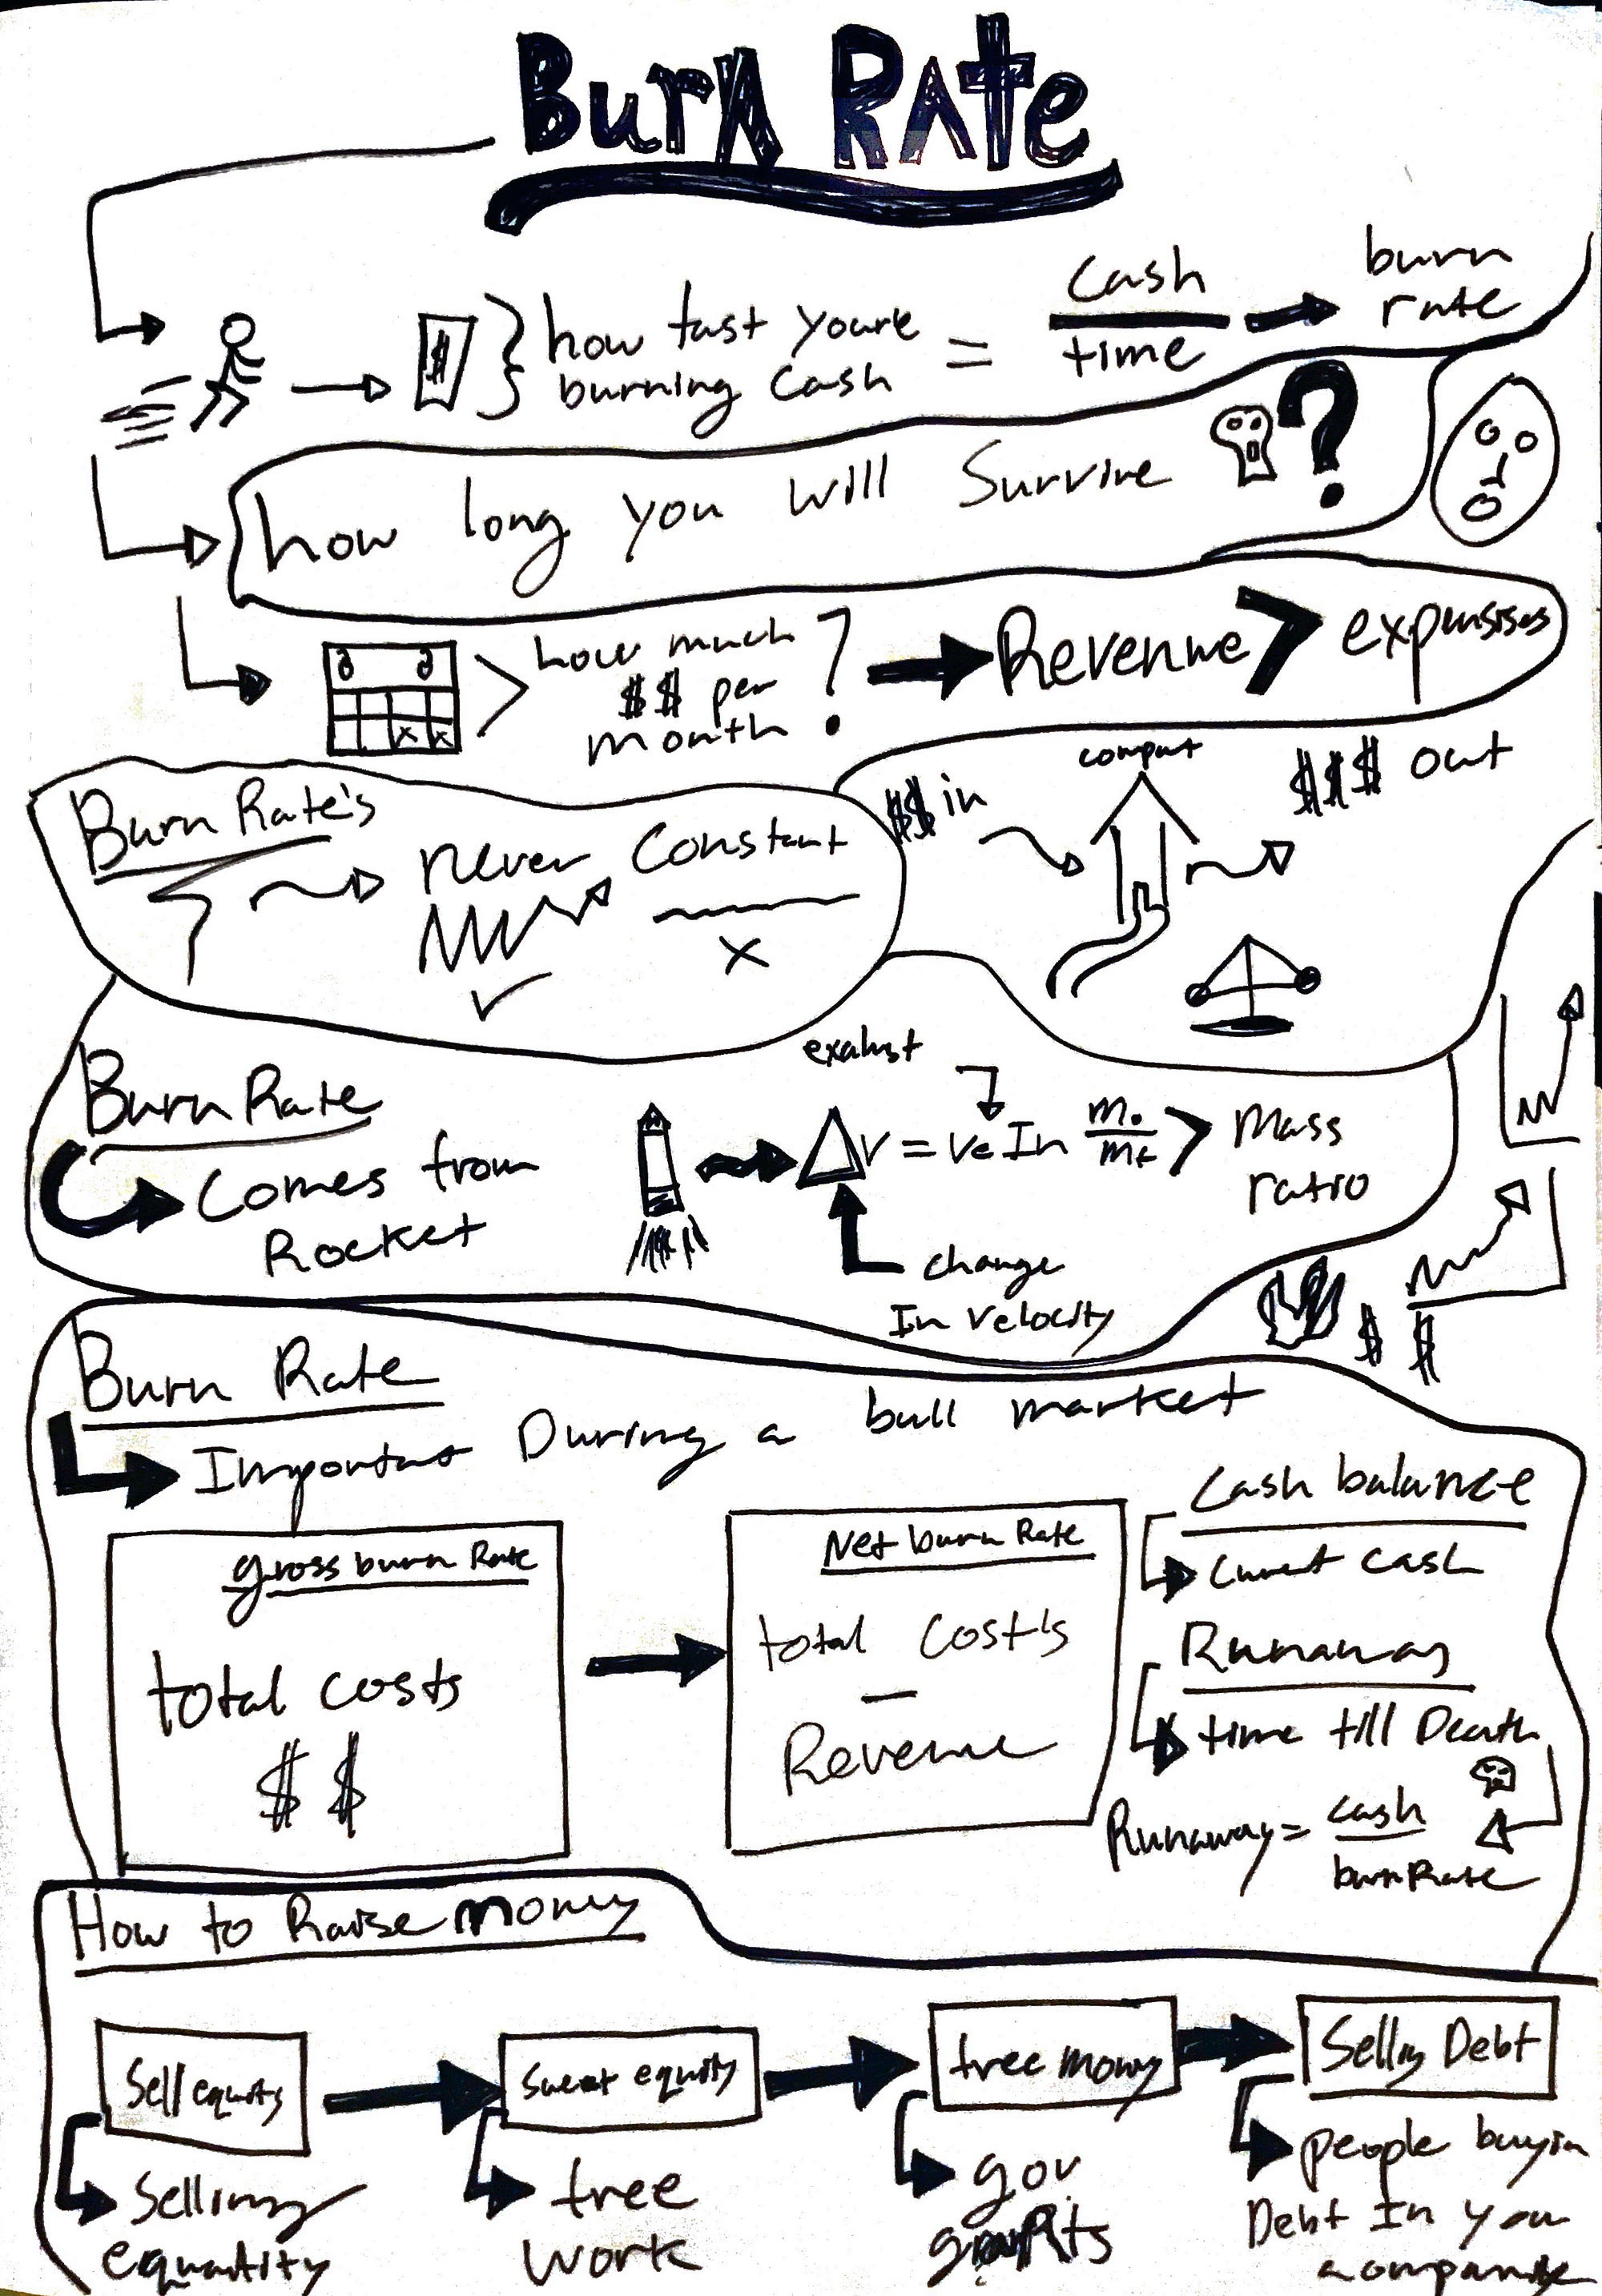 Burn Rate
how fast youre
burning cash
=
cash
time
burn
rate
$
how long you will Survive ?
how much
$$ per
month ?
Revenue > expensises
Burn Rate's
never constant
$$ in
company
$$$ out
Burn Rate
Comes from
Rocket
exahust
Δv = ve In m₀/mf > Mass
ratio
change
In velocity
$ $
Burn Rate
Important During a bull market
gross burn Rate
total costs
$ $
Net burn Rate
total costs
—
Revenue
Cash balance
Current cash
Runaway
time till Death
Runaway = cash
burn Rate
How to Raise money
Sell equity
Selling
equantity
Sweat equity
free
work
free money
gov
grants
Selling Debt
people buyin
Debt In you
acompany